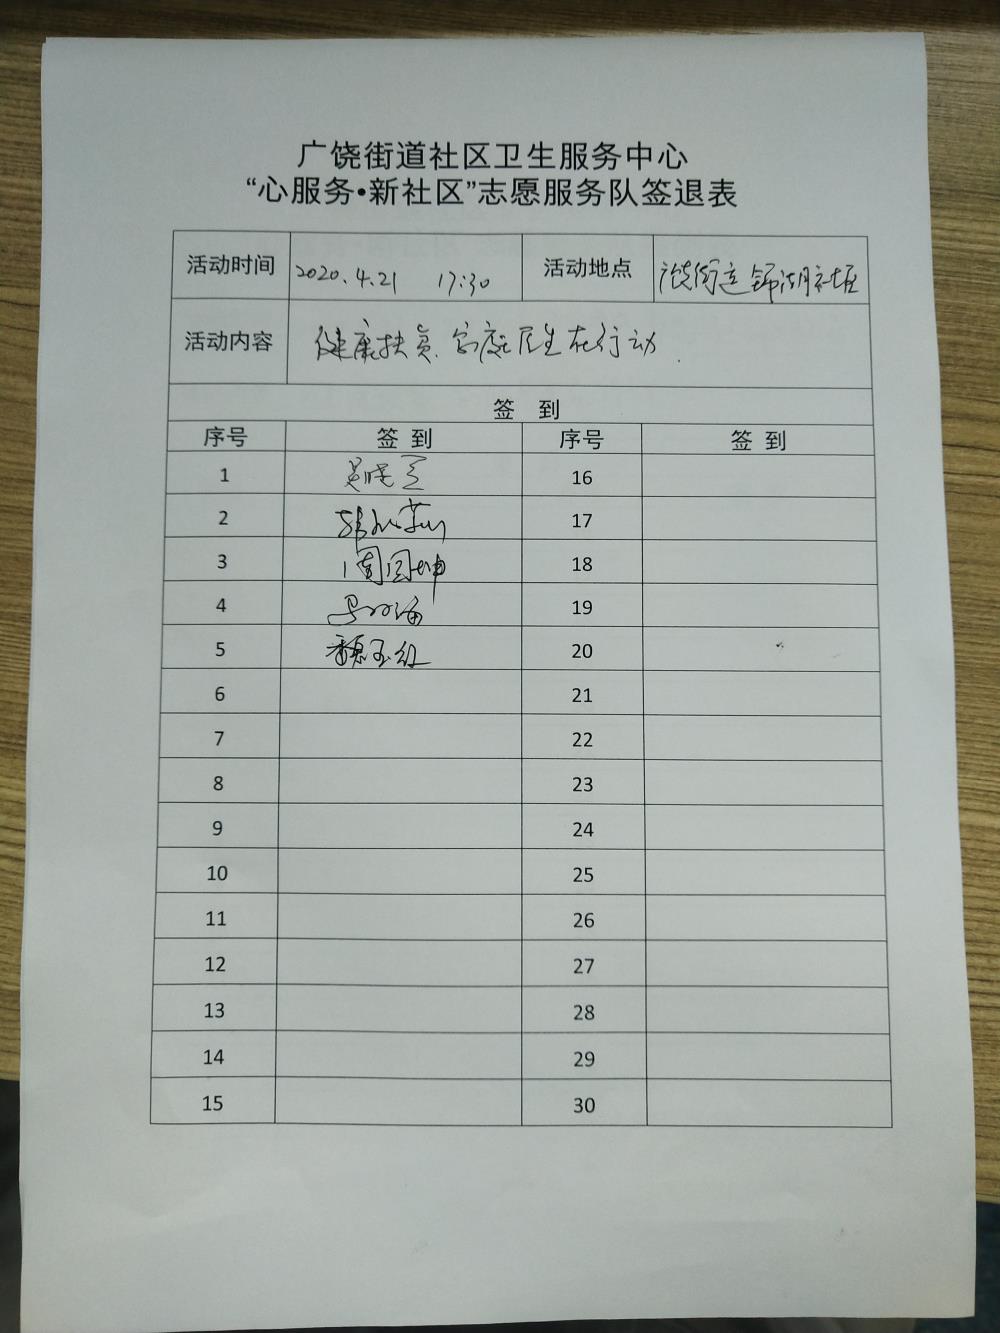 广饶街道社区卫生服务中心
“心服务•新社区”志愿服务队签退表
活动时间 2020.4.21 17:30 活动地点 广饶街道锦湖社区
活动内容 健康扶贫、家庭医生在行动.
签 到
序号 签 到 序号 签 到
1 16
2 17
3 周国坤 18
4 19
5 魏玉红 20
6 21
7 22
8 23
9 24
10 25
11 26
12 27
13 28
14 29
15 30